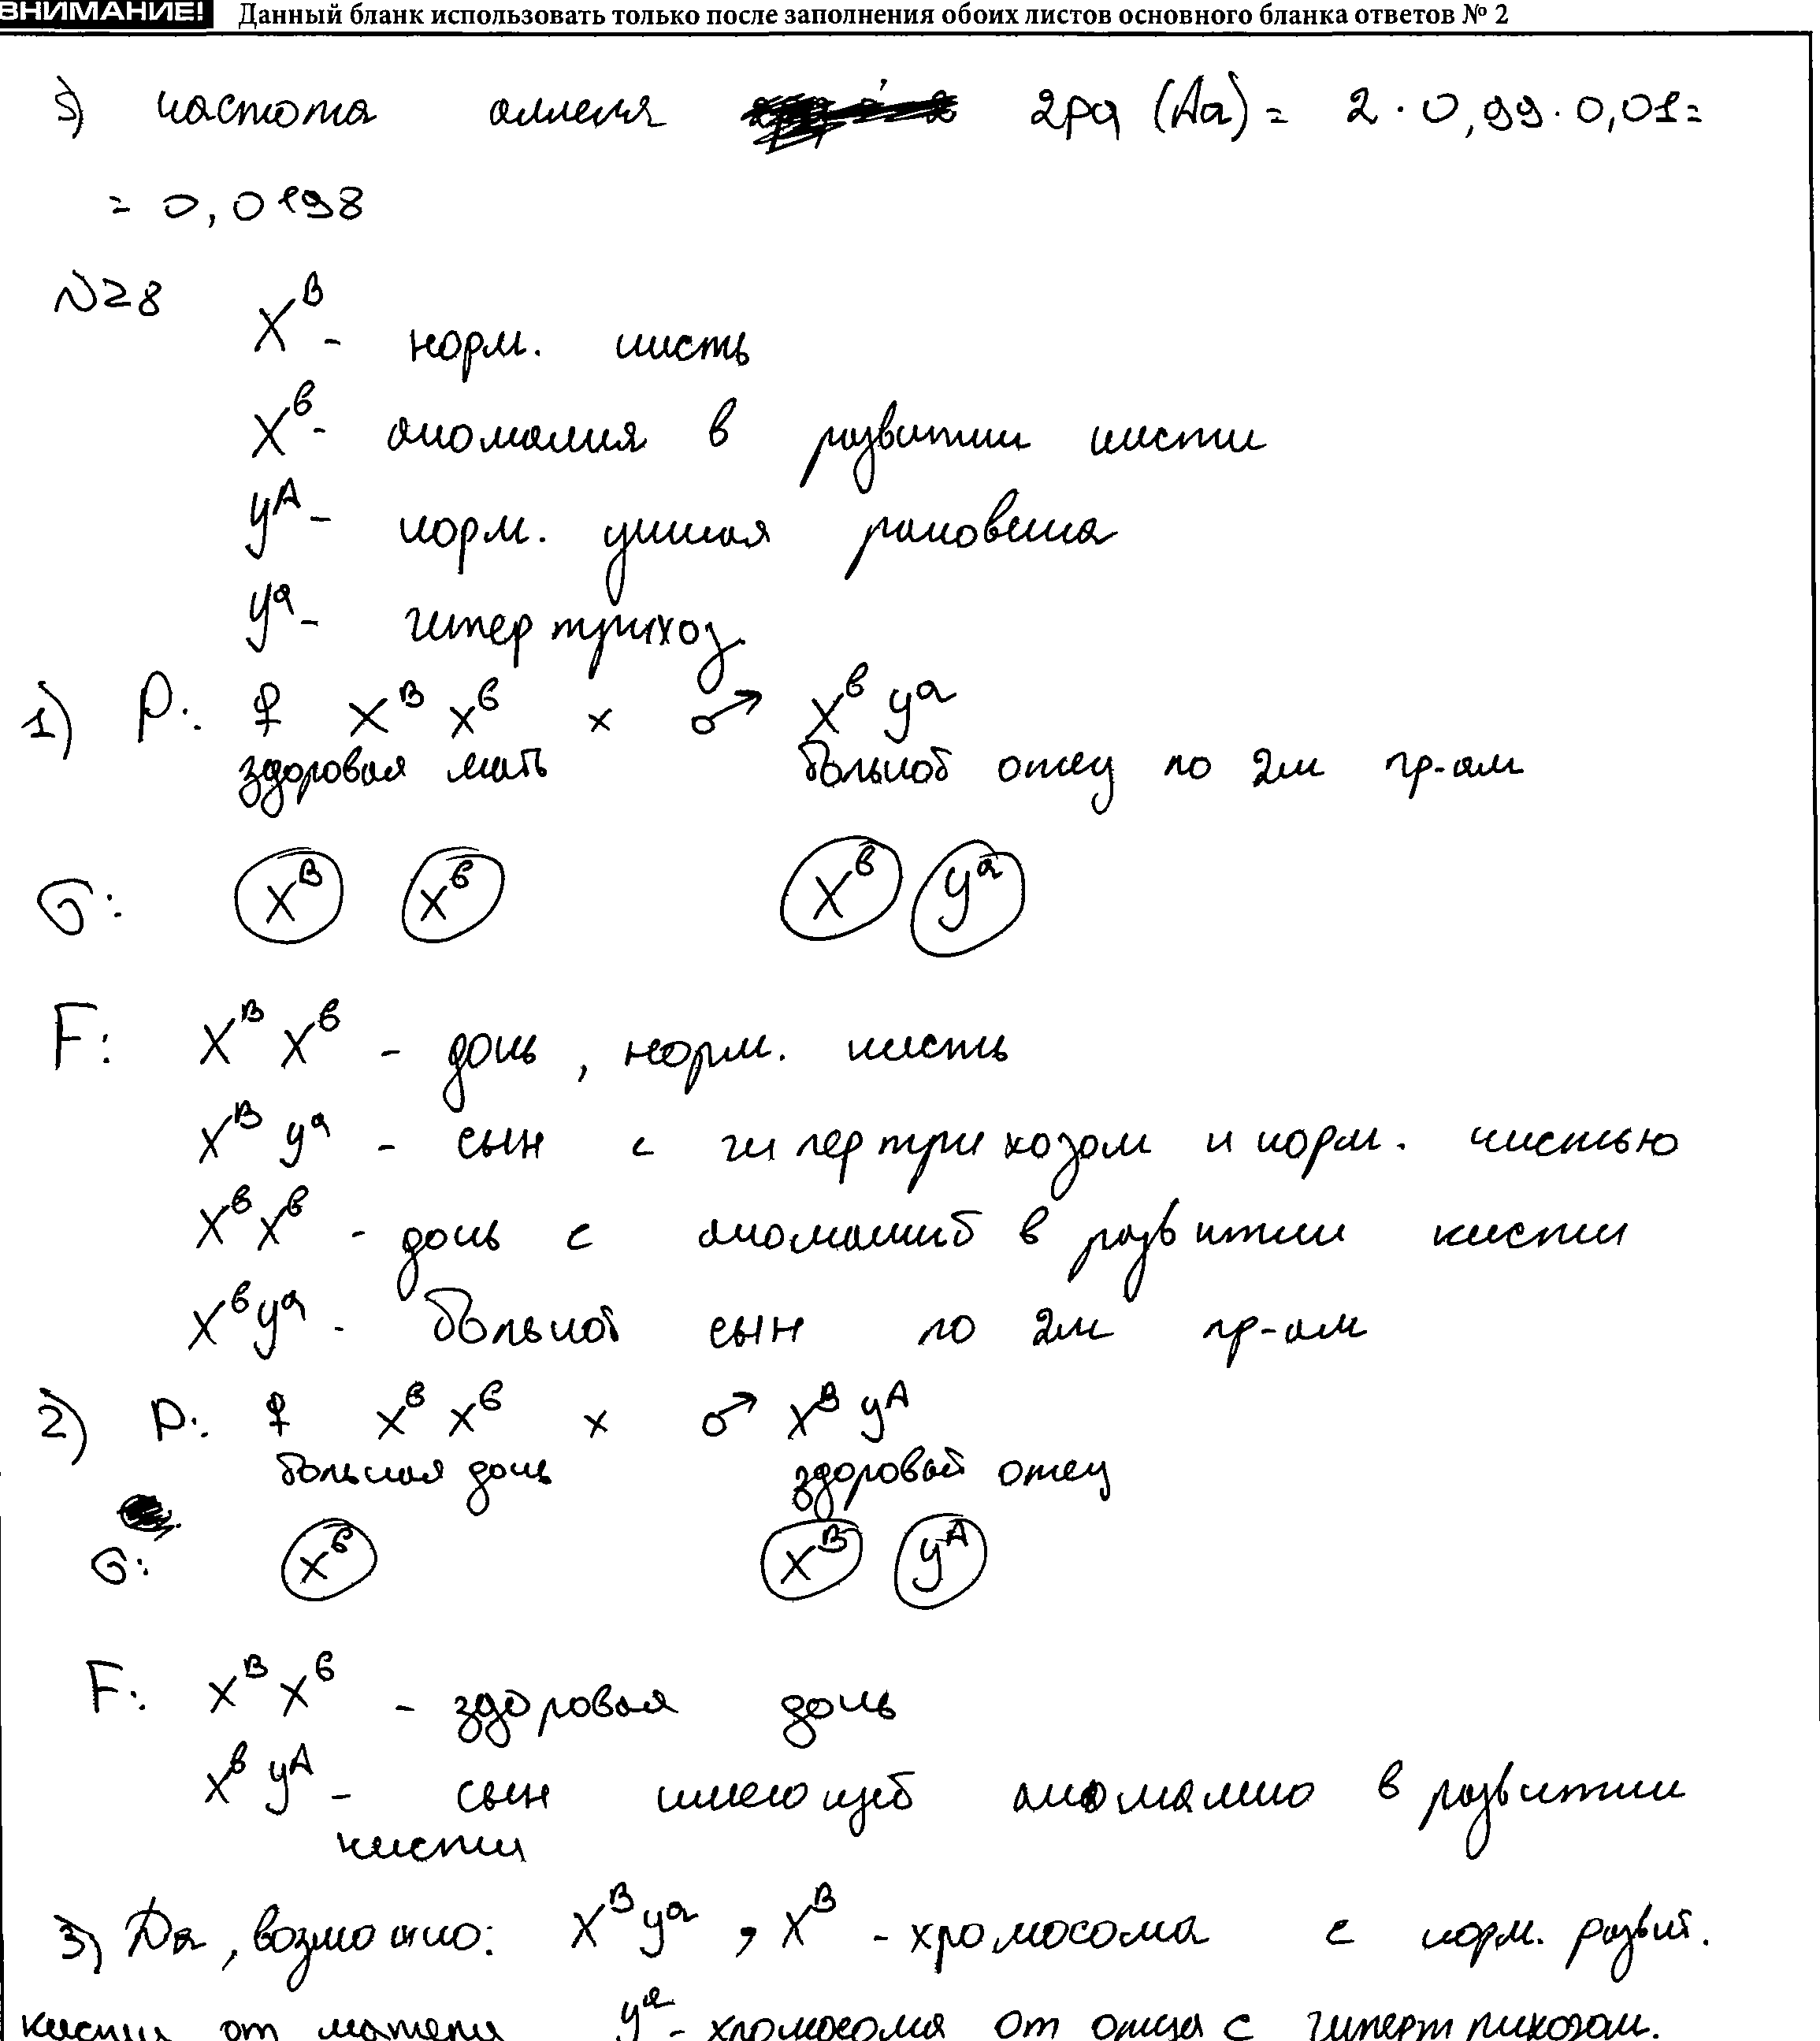 ВНИМАНИЕ! Данный бланк использовать только после заполнения обоих листов основного бланка ответов № 2
5) частота аллеля 2pq (Aa) = 2 · 0,99 · 0,01 =
= 0,0198
№28 X^B - норм. кисть
X^b - аномалия в развитии кисти
y^A - норм. ушная раковина
y^a - гипертрихоз
1) P: ♀ X^B X^b × ♂ X^b y^a
здоровая мать больной отец по 2м пр-ам
G: X^B X^b X^b y^a
F: X^B X^b - дочь, норм. кисть
X^B y^a - сын с гипертрихозом и норм. кистью
X^b X^b - дочь с аномалией в развитии кисти
X^b y^a - больной сын по 2м пр-ам
2) P: ♀ X^b X^b × ♂ X^B y^A
больная дочь здоровый отец
G: X^b X^B y^A
F: X^B X^b - здоровая дочь
X^b y^A - сын имеющий аномалию в развитии
кисти
3) Да, возможно: X^B y^a, X^B - хромосома с норм. развит.
кисти от матери y^a - хромосома от отца с гипертрихозом.